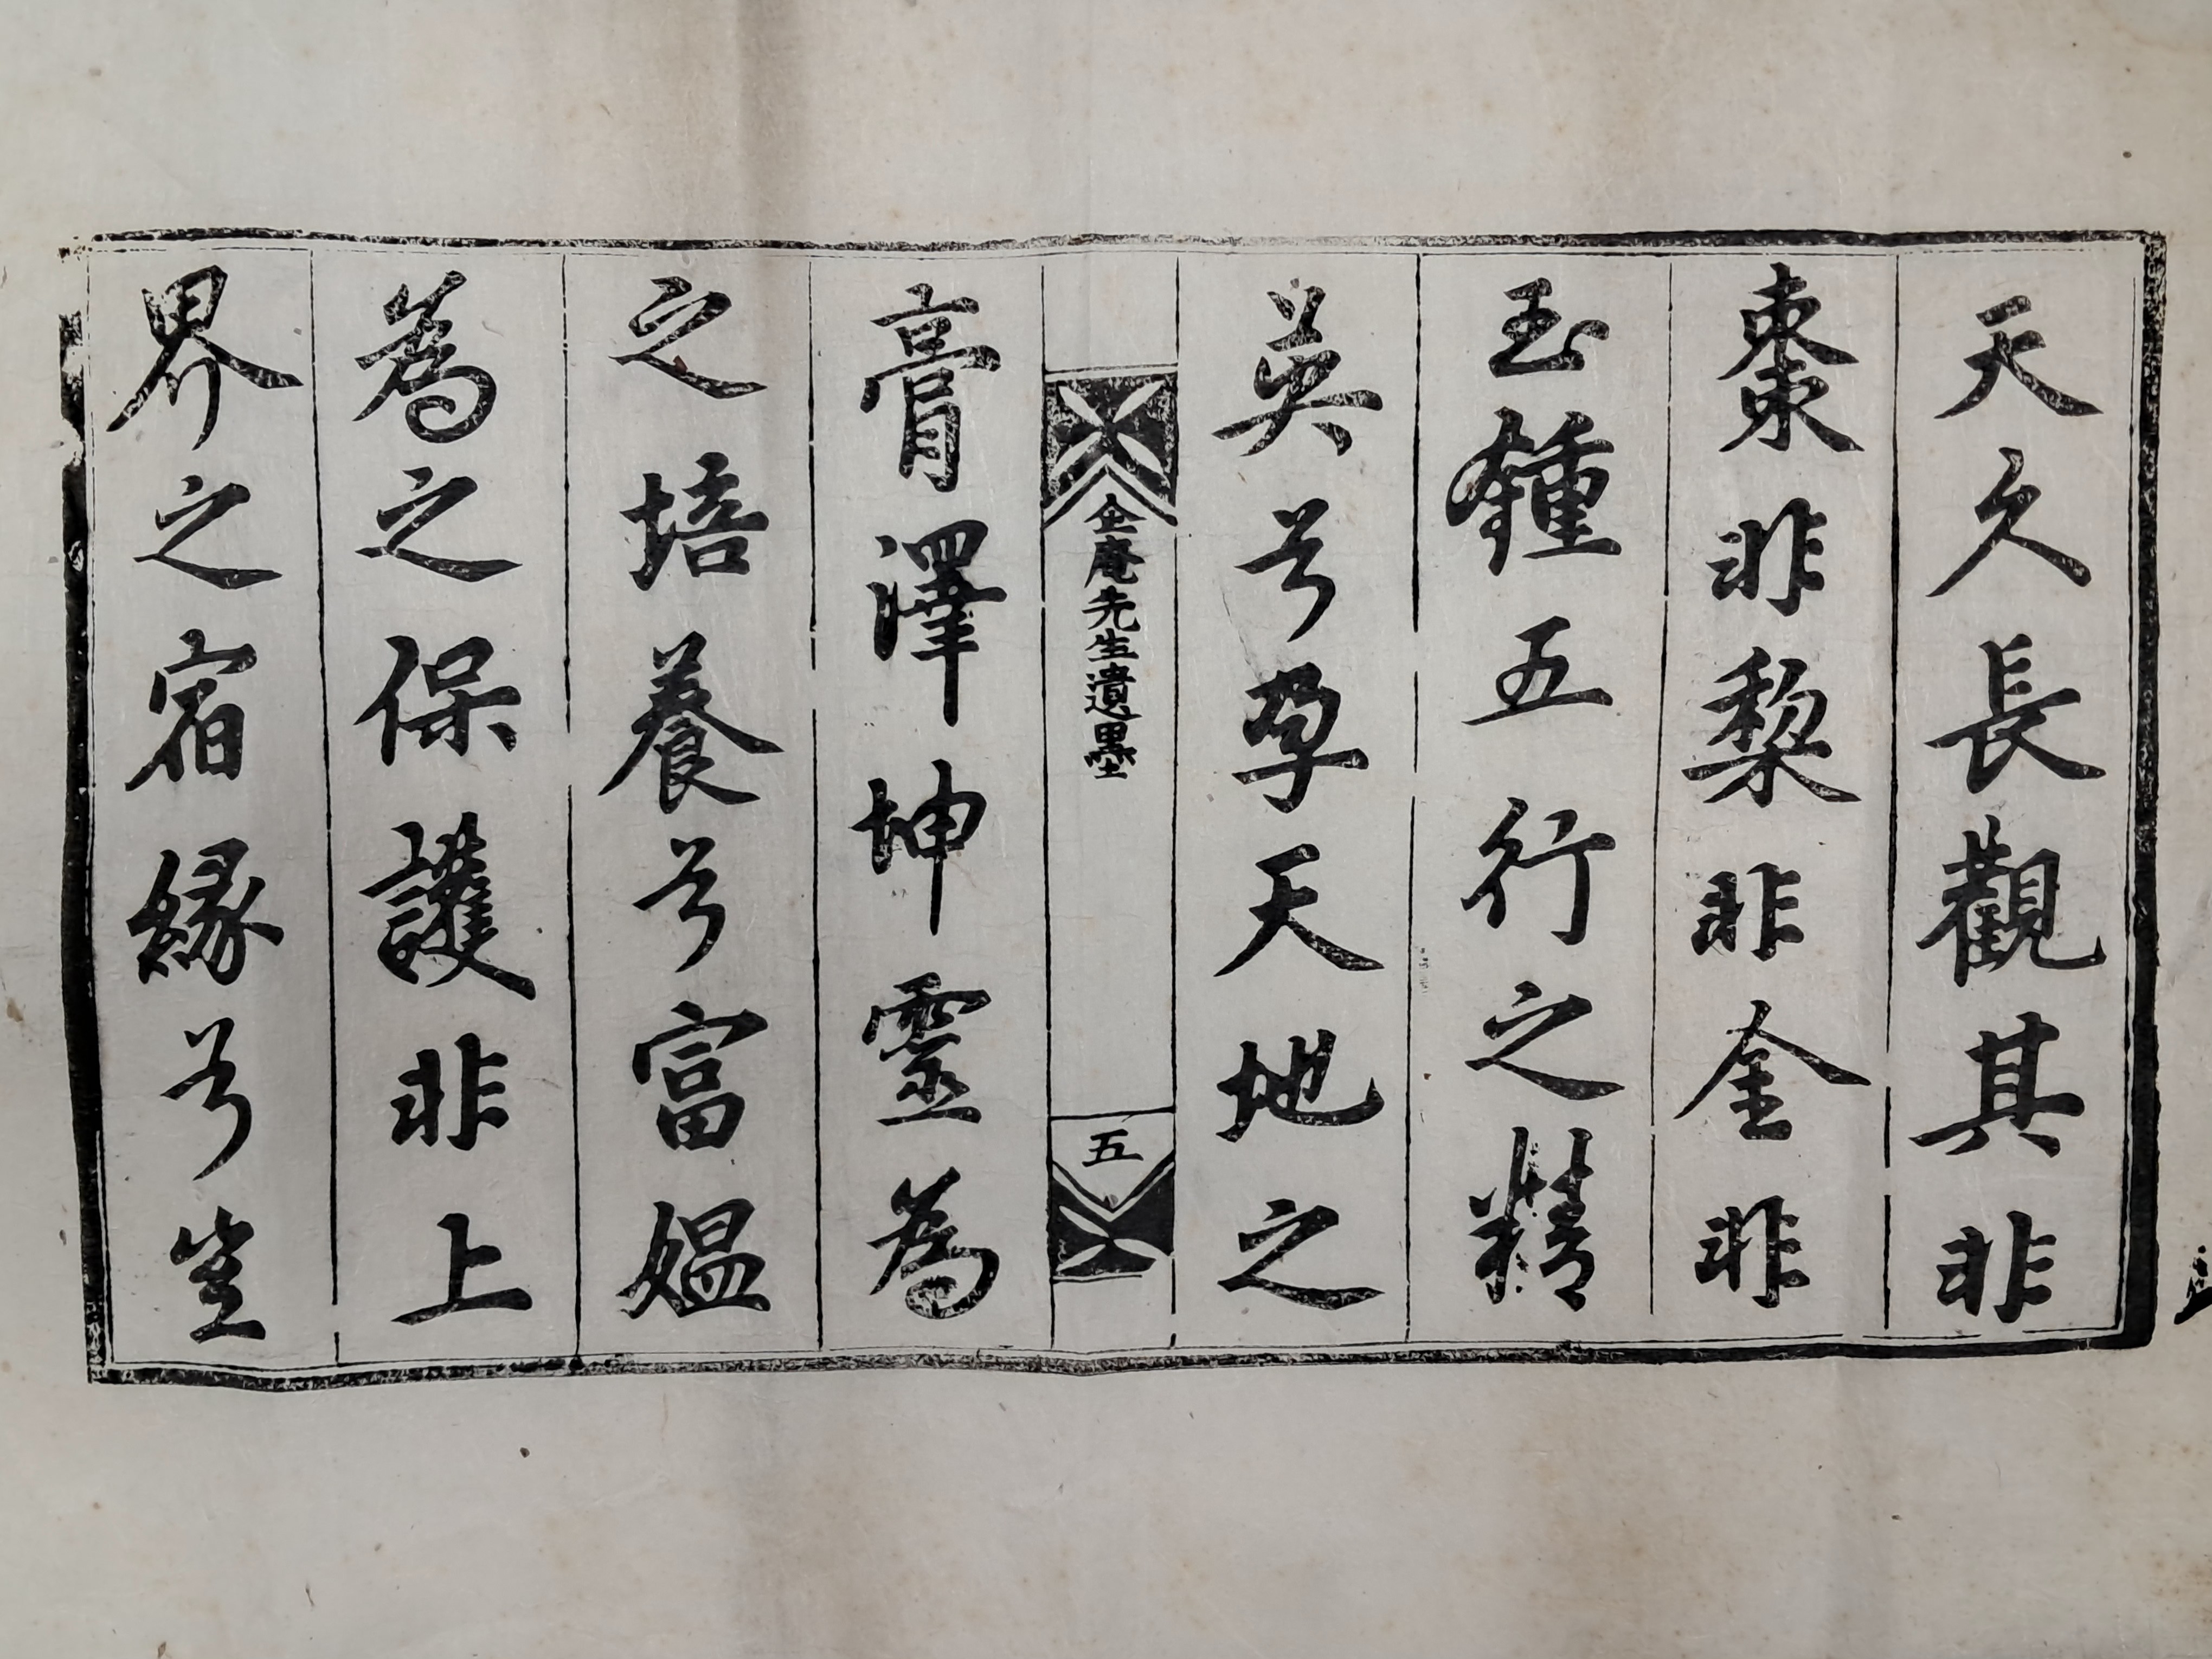 天久長觀其非
棗非棃非金非
玉鍾五行之精
英兮孕天地之
企庵先生遺墨
五
膏澤坤靈為
之培養兮富媼
為之保護非上
界之宿緣兮豈